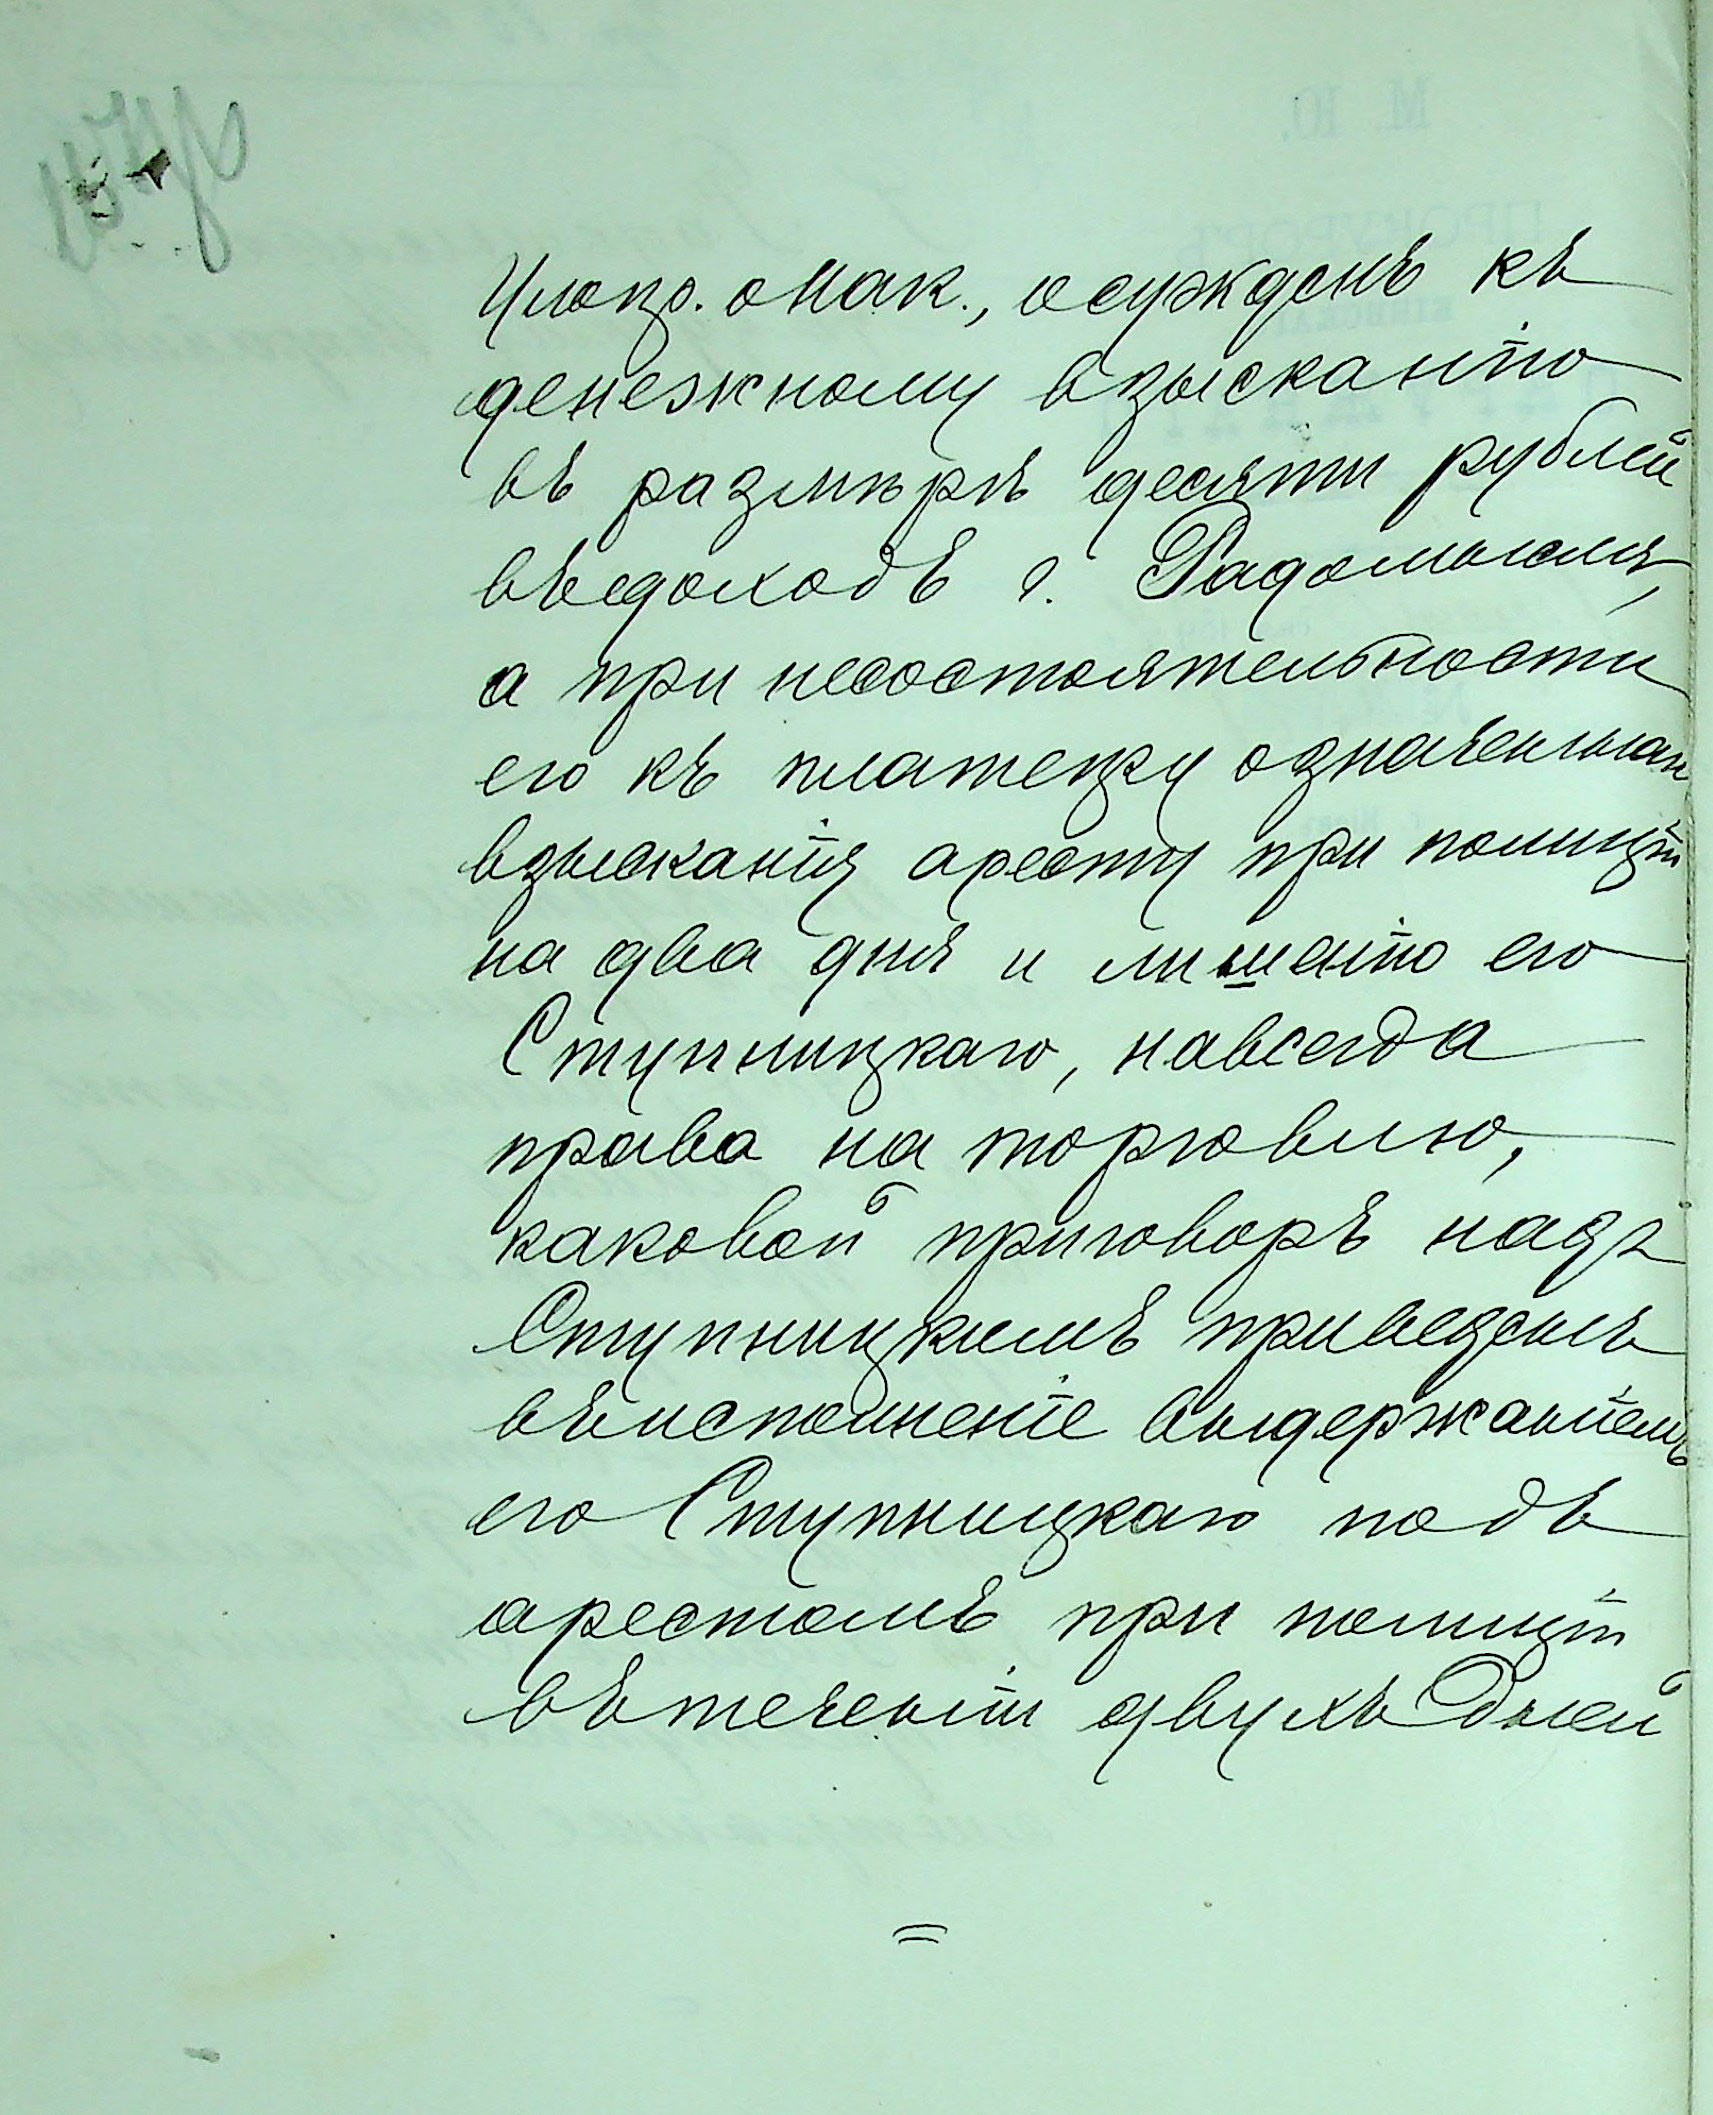 Улож. о Нак., осужденъ къ
денежному взысканію
въ размѣрѣ десяти рублей
въ доходъ г. Радомысля,
а при несостоятельности
его къ платежу означеннаго
взысканія аресту при полиціи
на два дня и лишенію его
Ступницкаго, навсегда
права на торговлю,
каковой приговоръ надъ
Ступницкимъ приведенъ
въ исполненіе выдержаніемъ
его Ступницкаго подъ
арестомъ при полиціи
въ теченіи двухъ дней